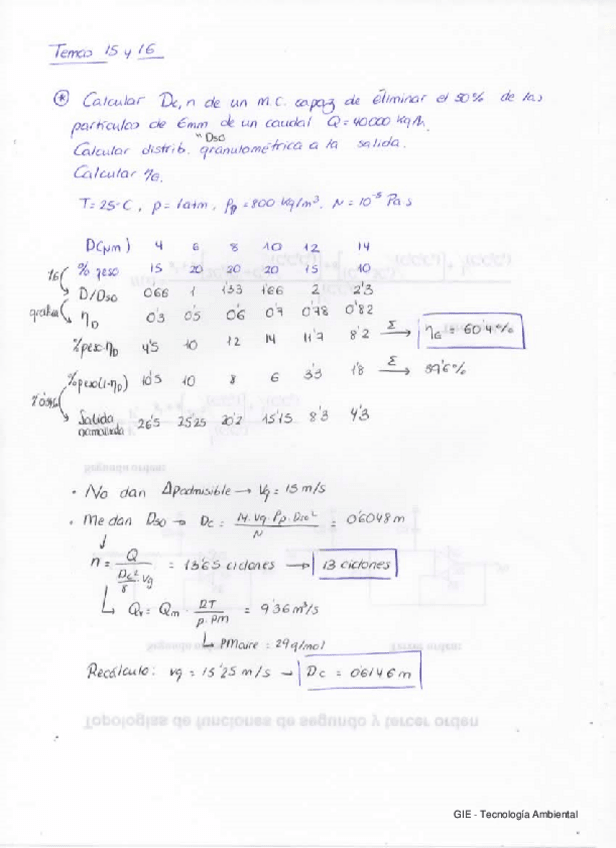 Temas 15 y 16
* Calcular Dc, n de un M.C. capaz de eliminar el 50% de las
partículas de 6mm de un caudal Q = 40000 kg/h.
"D50
Calcular distrib. granulométrica a la salida.
Calcular ηE.
T = 25ºC, p = 1atm, ρp = 800 kg/m³. N = 10⁻⁵ Pa s
D(μm) 4 6 8 10 12 14
% peso 15 20 20 20 15 10
D/D50 0'66 1 1'33 1'66 2 2'3
ηD 0'3 0'5 0'6 0'7 0'78 0'82
%peso·ηD 4'5 10 12 14 11'7 8'2 Σ→ ηE = 60'4%
%peso(1-ηD) 10'5 10 8 6 3'3 1'8 Σ→ 39'6%
Salida 26'5 25'25 20'2 15'15 8'3 4'3
normalizada
• No dan Δpadmisible → Vg = 15 m/s
• Me dan D50 → Dc = N·Vg·ρp·D50² / N = 0'6048 m
n = Q / (Dc²/8 · Vg) = 13'65 ciclones → 13 ciclones
Qv = Qm · RT / p·PM = 9'36 m³/s
PMaire = 29g/mol
Recálculo: vg = 15'25 m/s → Dc = 0'6146 m
Topologías de funciones de segundo y tercer orden
GIE - Tecnología Ambiental